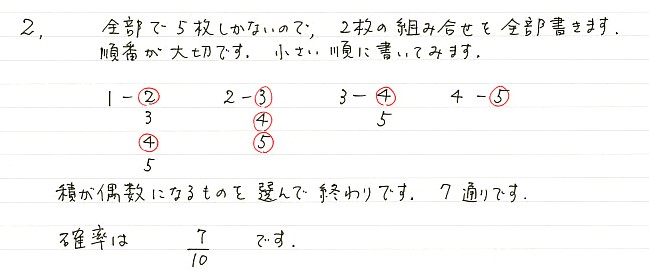 2, 全部で5枚しかないので, 2枚の組み合せを全部書きます.
順番が大切です. 小さい順に書いてみます.
1 - ② 2 - ③ 3 - ④ 4 - ⑤
3 ④ 5
④ ⑤
5
積が偶数になるものを選んで終わりです. 7通りです.
確率は 7/10 です.